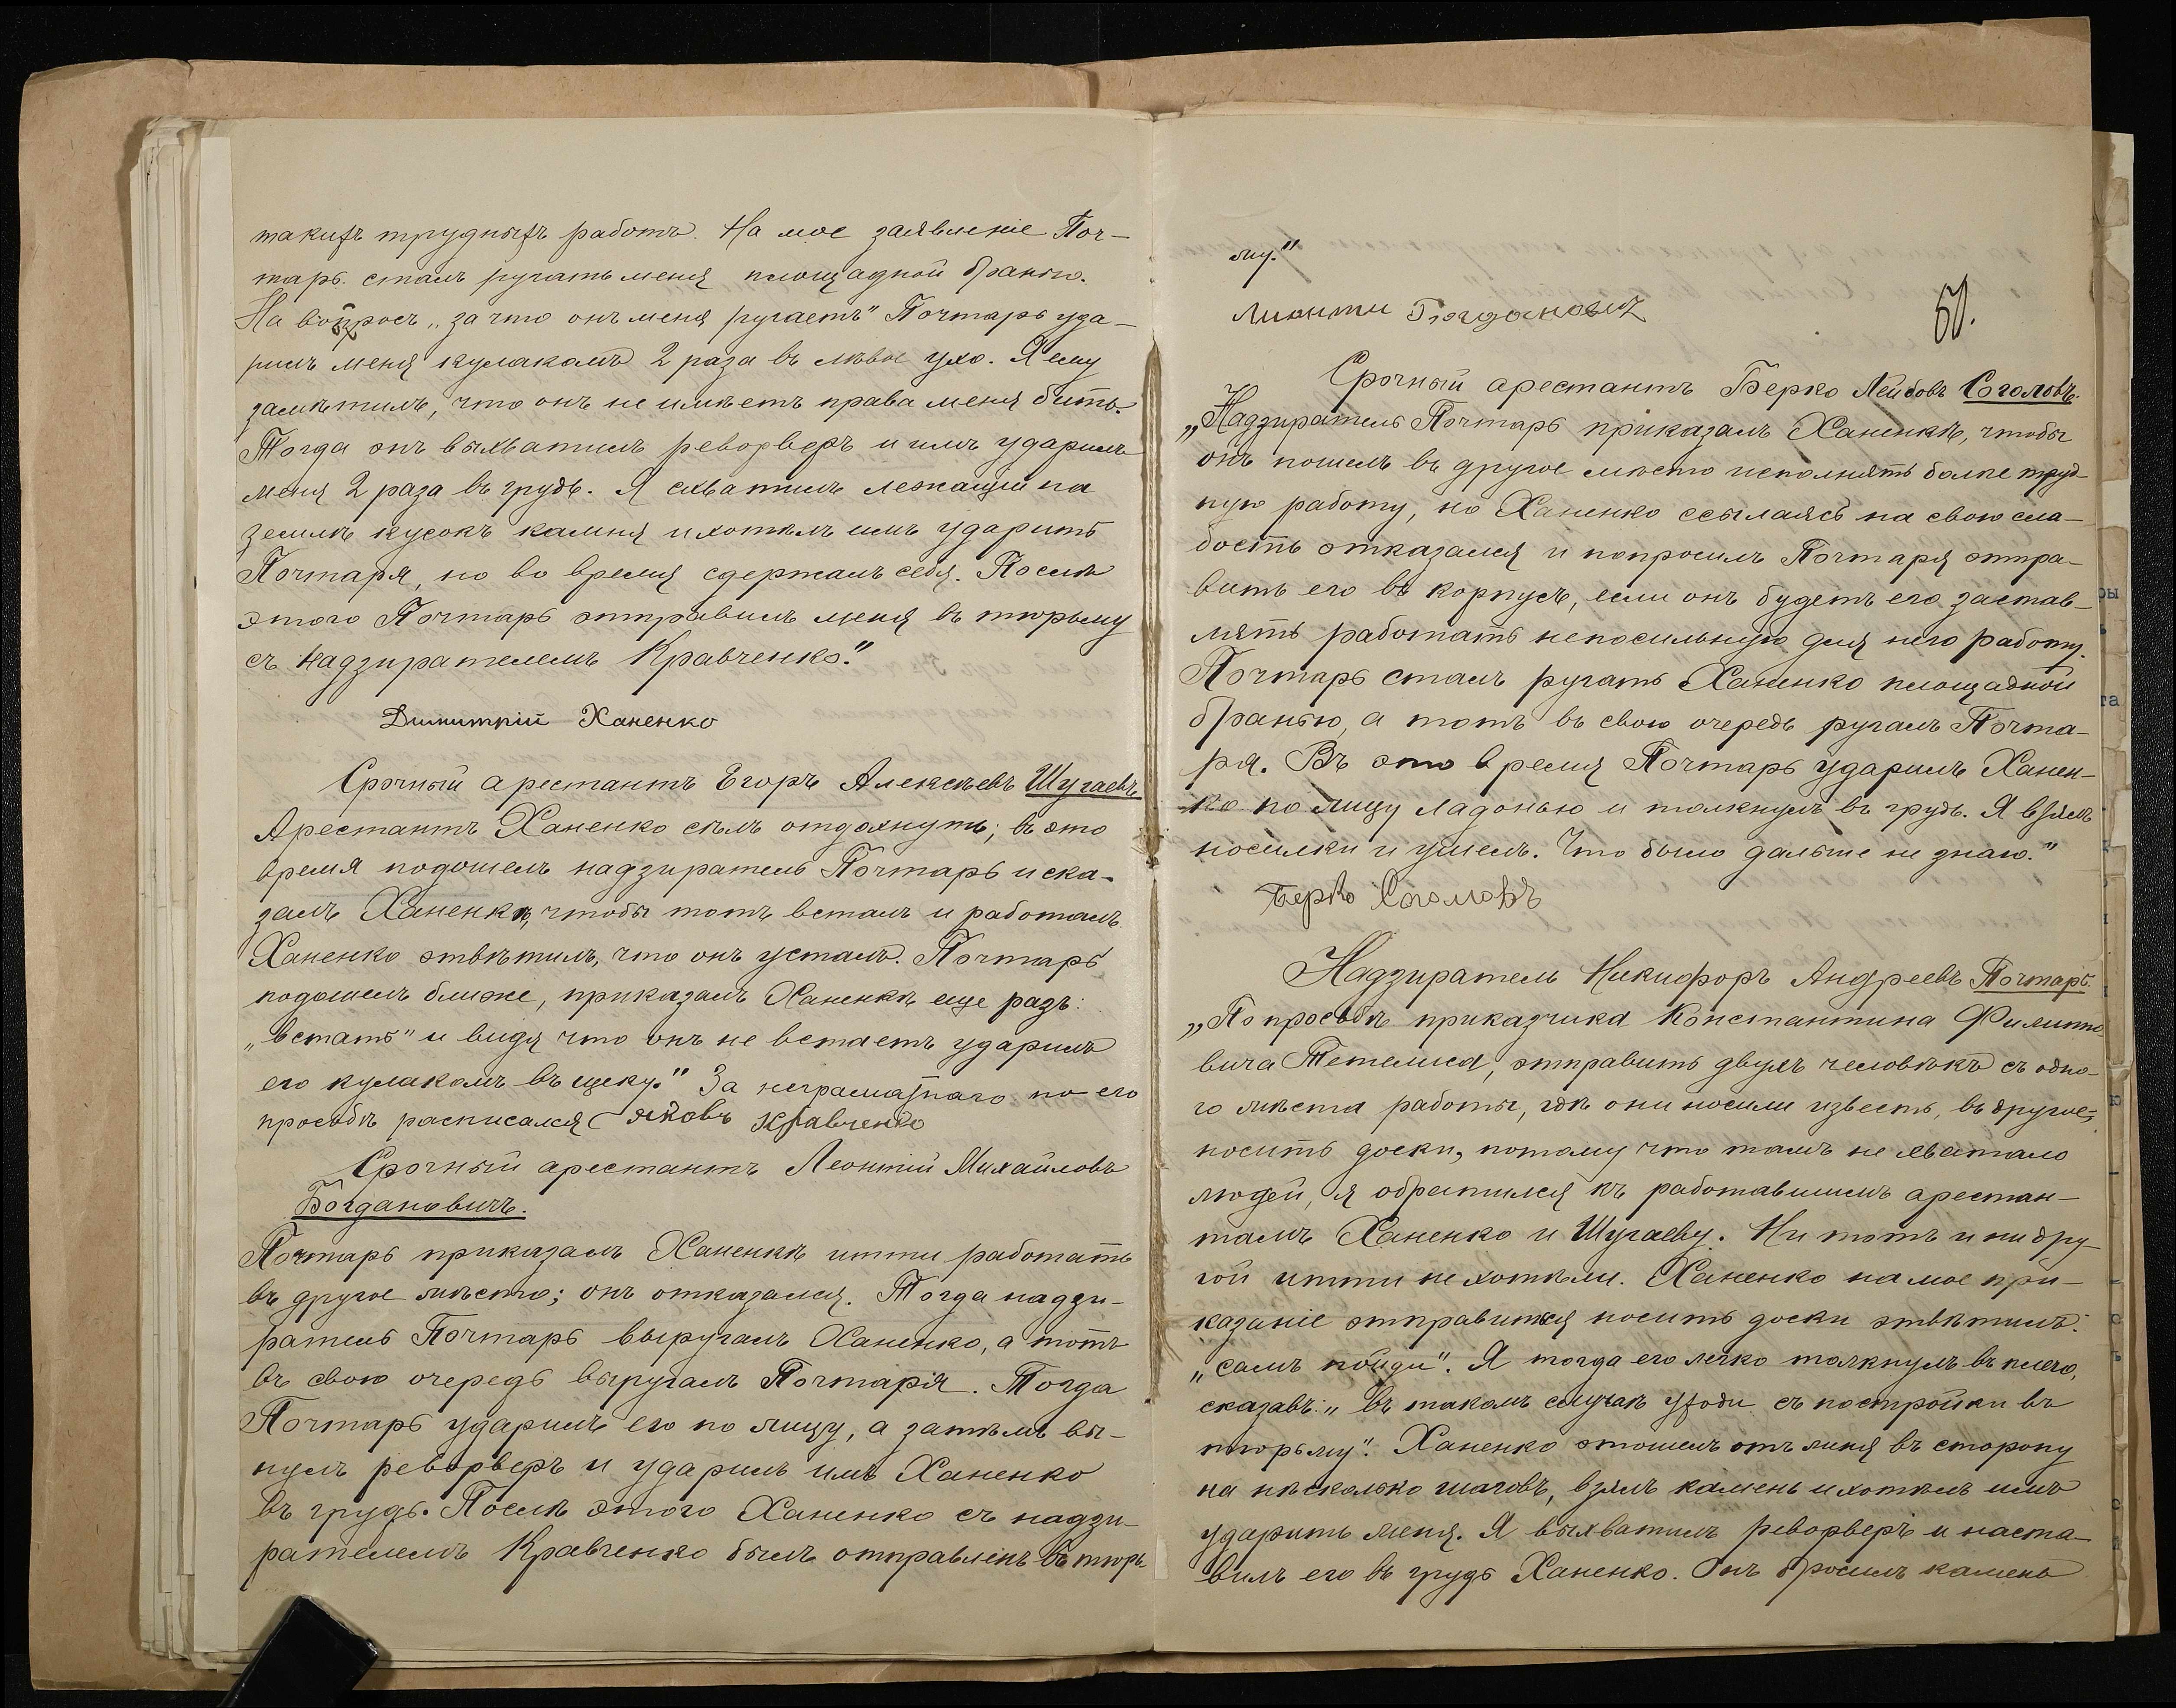 такихъ трудныхъ работъ. На мое заявленіе Поч-
тарь сталъ ругать меня площадной бранью.
На вопросъ „за что онъ меня ругаетъ" Почтарь уда-
рилъ меня кулакомъ 2 раза въ лѣвое ухо. Я ему
замѣтилъ, что онъ не имѣетъ права меня бить.
Тогда онъ выхватилъ револверъ и имъ ударилъ
меня 2 раза въ грудь. Я схватилъ лежащій на
землѣ кусокъ камня и хотѣлъ имъ ударить
Почтаря, но во время сдержалъ себя. Послѣ
этого Почтарь отправилъ меня въ тюрьму
съ надзирателемъ Кравченко."
Димитрій Ханенко
Срочный арестантъ Егоръ Алексѣевъ Шугаевъ
Арестантъ Ханенко сѣлъ отдохнуть; въ это
время подошелъ надзиратель Почтарь и ска-
залъ Ханенкѣ, чтобы тотъ всталъ и работалъ.
Ханенко отвѣтилъ, что онъ усталъ. Почтарь
подошелъ ближе, приказалъ Ханенкѣ еще разъ:
„встать" и видя что онъ не встаетъ ударилъ
его кулакомъ въ щеку." За неграматнаго по его
просьбѣ расписался Яковъ Кравченко
Срочный арестантъ Леонтій Михайловъ
Богдановичъ.
Почтарь приказалъ Ханенкѣ итти работать
въ другое мѣсто; онъ отказался. Тогда надзи-
ратель Почтарь выругалъ Ханенко, а тотъ
въ свою очередь выругалъ Почтаря. Тогда
Почтарь ударилъ его по лицу, а затѣмъ вы-
нулъ револверъ и ударилъ имъ Ханенко
въ грудь. Послѣ этого Ханенко съ надзи-
рателемъ Кравченко былъ отправленъ въ тюрь
му."
Лионти Богданович
50.
Срочный арестантъ Берко Лейбовъ Соголовъ.
„Надзиратель Почтарь приказалъ Ханенкѣ, чтобы
онъ пошелъ въ другое мѣсто исполнять болѣе труд-
ную работу, но Ханенко ссылаясь на свою сла-
бость отказался и попросилъ Почтаря отпра-
вить его въ корпусъ, если онъ будетъ его застав-
лять работать непосильную для него работу.
Почтарь сталъ ругать Ханенко площадной
бранью, а тотъ въ свою очередь ругалъ Почта-
ря. Въ это время Почтарь ударилъ Ханен-
ко по лицу ладонью и толкнулъ въ грудь. Я взялъ
носилки и ушелъ. Что было дальше не знаю."
Берко Соголовъ
Надзиратель Никифоръ Андреевъ Почтарь.
„По просьбѣ приказчика Константина Филиппо
вича Тетелиса, отправить двухъ человѣкъ съ одно-
го мѣста работы, гдѣ они носили известь, въ другое,
носить доски, потому что тамъ не хватало
людей, я обратился къ работавшимъ арестан-
тамъ Ханенко и Шугаеву. Ни тотъ и ни дру-
гой итти не хотѣли. Ханенко на мое при-
казаніе отправиться носить доски отвѣтилъ:
„самъ пойди". Я тогда его легко толкнулъ въ плечо,
сказавъ: „въ такомъ случаѣ уходи съ постройки въ
тюрьму". Ханенко отошелъ отъ меня въ сторону
на нѣсколько шаговъ, взялъ камень и хотѣлъ имъ
ударить меня. Я выхватилъ револверъ и наста-
вилъ его въ грудь Ханенко. Онъ бросилъ камень